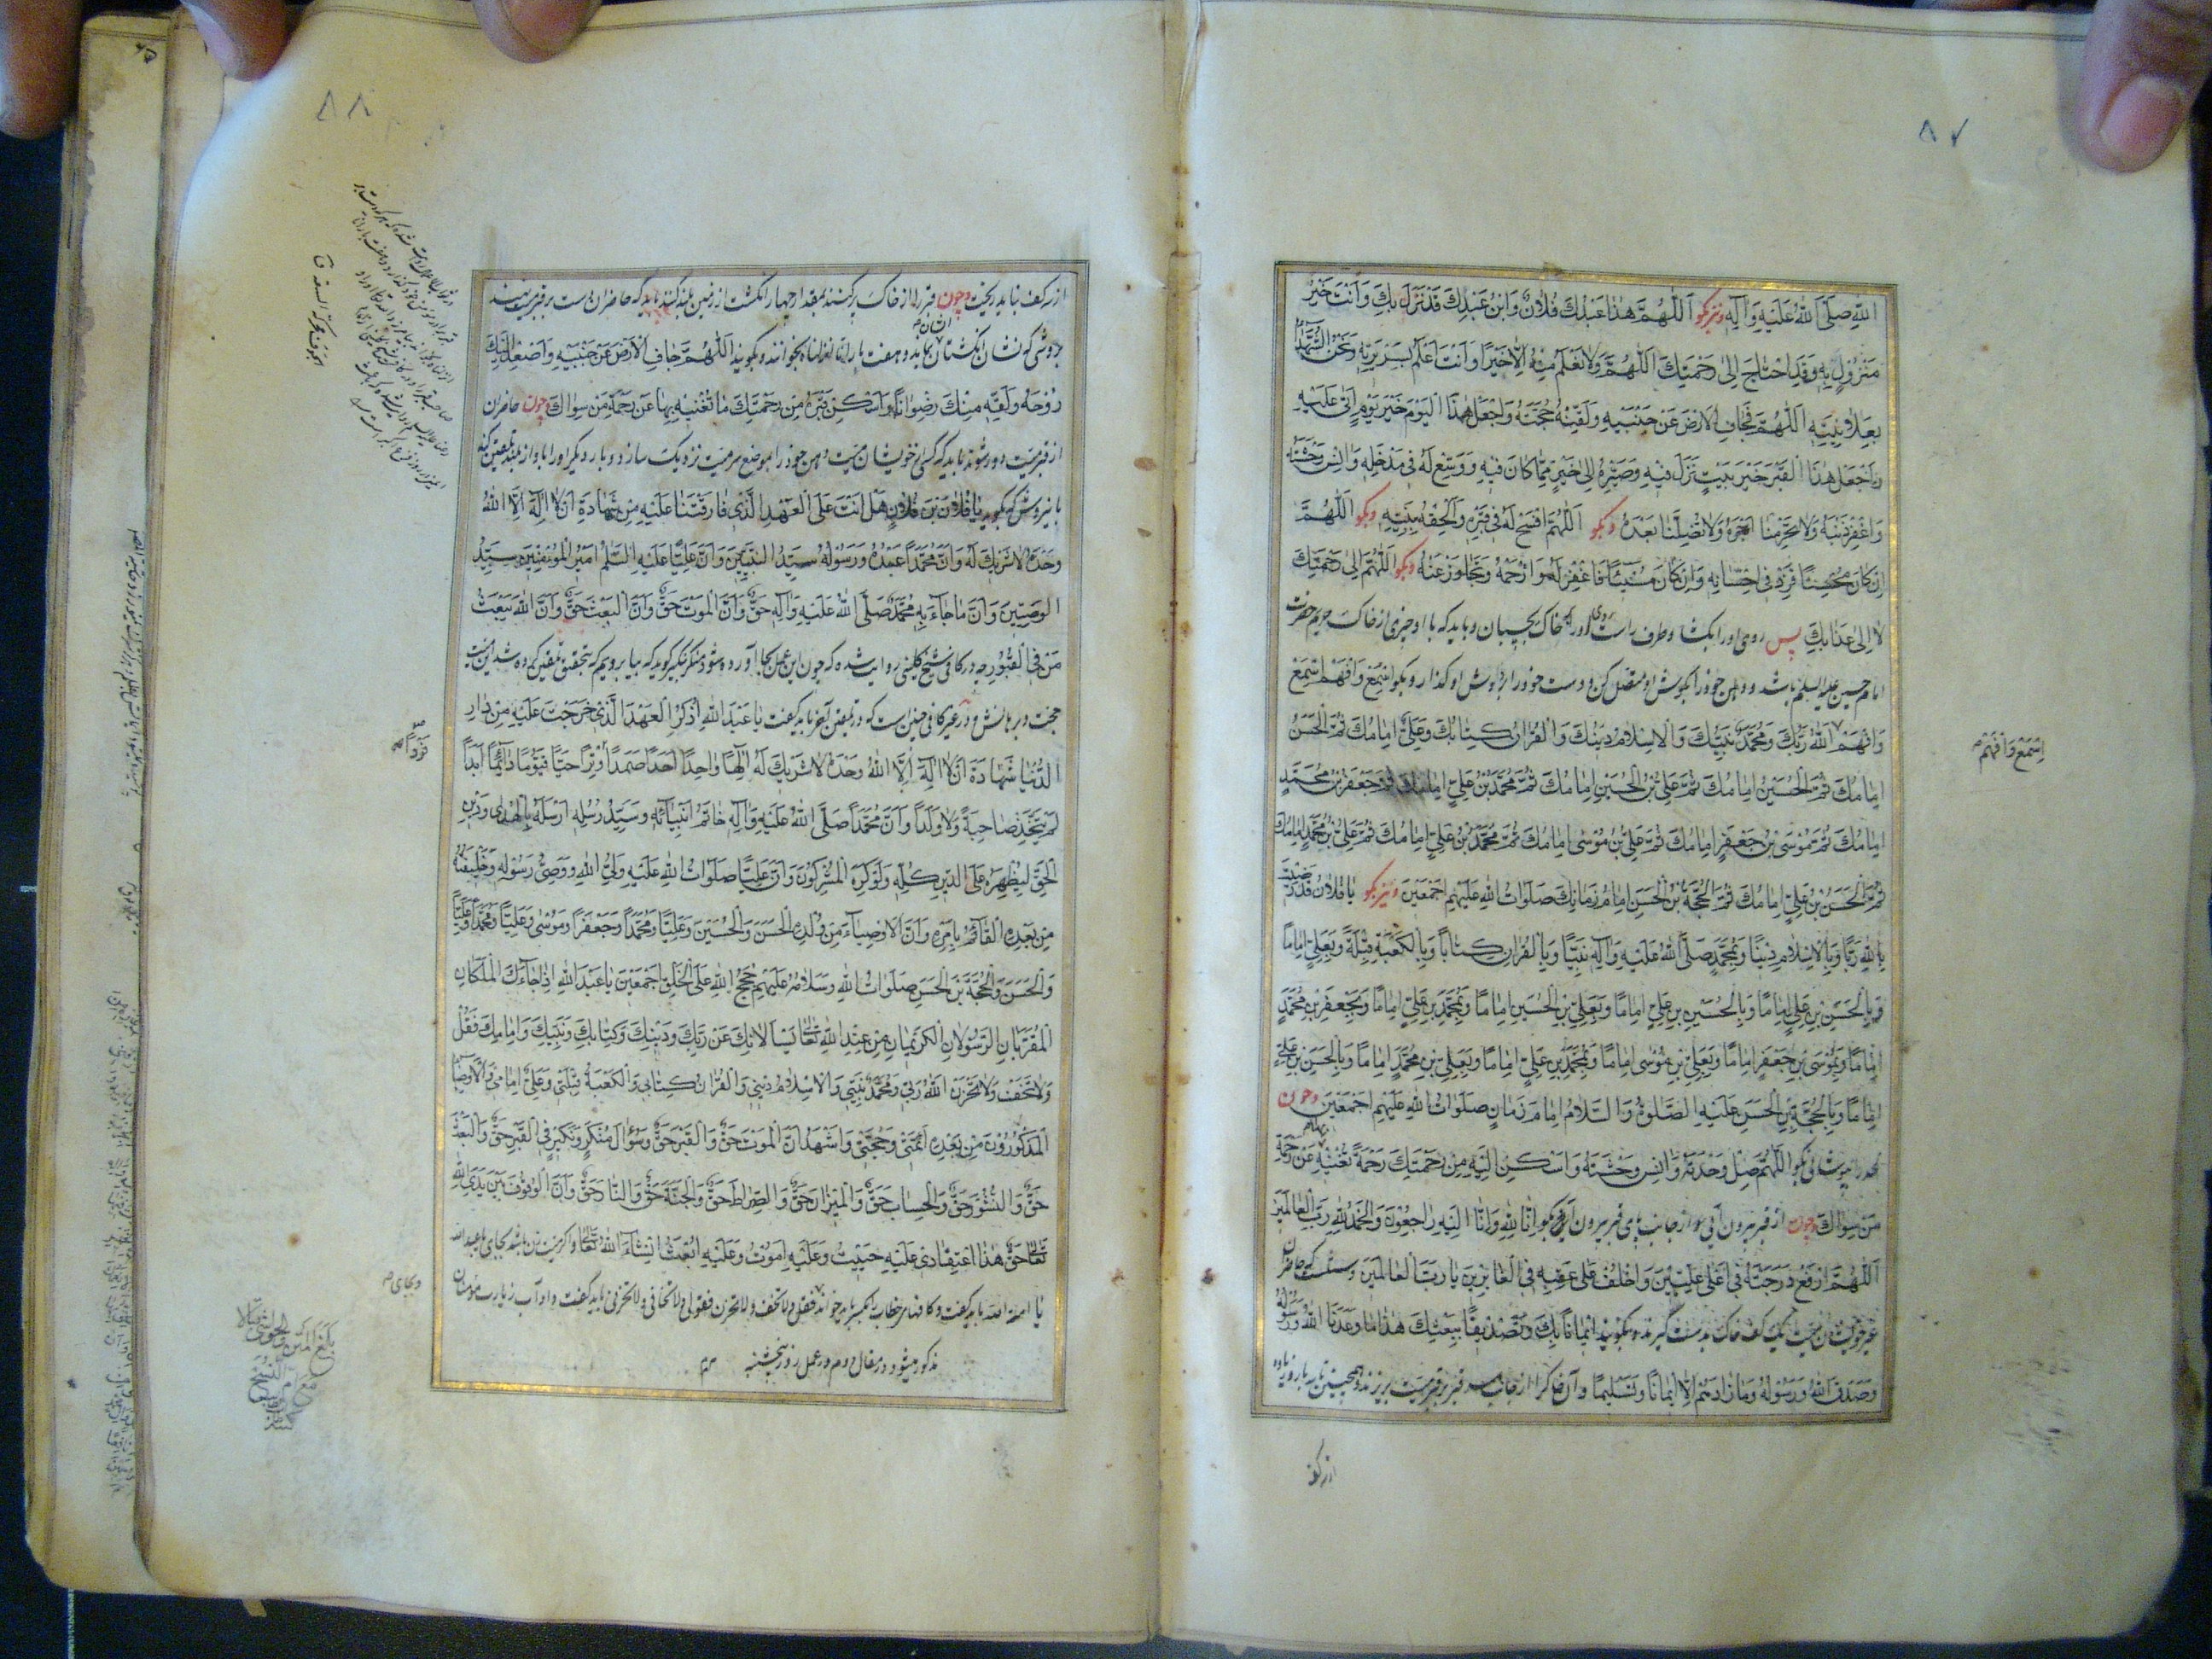 ٨٧
الله صَلَّى اللهُ عَلَيْهِ وَآلِهِ ونیز بگو اَللّٰهُمَّ هٰذَا عَبْدُكَ فُلَانٌ وَابْنُ عَبْدِكَ قَدْ نَزَلَ بِكَ وَاَنْتَ خَيْرُ
مَنْزُولٍ بِهِ وَقَدِ احْتَاجَ اِلىٰ رَحْمَتِكَ اَللّٰهُمَّ وَلَا نَعْلَمُ مِنْهُ اِلَّا خَيْرًا وَاَنْتَ اَعْلَمُ بِسَرِيرَتِهِ وَنَحْنُ الشُّهَدَاءُ
بِعَلَانِيَتِهِ اَللّٰهُمَّ فَجَافِ الْاَرْضَ عَنْ جَنْبَيْهِ وَلَقِّنْهُ حُجَّتَهُ وَاجْعَلْ هٰذَا الْيَوْمَ خَيْرَ يَوْمٍ اَتىٰ عَلَيْهِ
وَاجْعَلْ هٰذَا الْقَبْرَ خَيْرَ بَيْتٍ نَزَلَ فِيهِ وَصَيِّرْهُ اِلىٰ خَيْرٍ مِمَّا كَانَ فِيهِ وَوَسِّعْ لَهُ فِي مَدْخَلِهِ وَاٰنِسْ وَحْشَتَهُ
وَاغْفِرْ ذَنْبَهُ وَلَا تَحْرِمْنَا اَجْرَهُ وَلَا تُضِلَّنَا بَعْدَهُ وبگو اَللّٰهُمَّ افْسَحْ لَهُ فِي قَبْرِهِ وَاَلْحِقْهُ بِنَبِيِّهِ وبگو اَللّٰهُمَّ
اِنْ كَانَ مُحْسِنًا فَزِدْ فِي اِحْسَانِهِ وَاِنْ كَانَ مُسِيئًا فَاغْفِرْ لَهُ وَارْحَمْهُ وَتَجَاوَزْ عَنْهُ وبگو اَللّٰهُمَّ اِلىٰ رَحْمَتِكَ
لَا اِلىٰ عَذَابِكَ پس روی اورا بگشا وطرف راست روی اورا بخاک بچسبان وباید که با او چیزی از خاک حریم حضرت
امام حسین علیه السلم باشد ودهن خود را بگوش او متصل کن ودست خود را بر دوش او گذار وبگو اِسْمَعْ وَافْهَمْ اِسْمَعْ
وَافْهَمْ اَللّٰهُ رَبُّكَ وَمُحَمَّدٌ نَبِيُّكَ وَالْاِسْلَامُ دِينُكَ وَالْقُرْاٰنُ كِتَابُكَ وَعَلِيٌّ اِمَامُكَ ثُمَّ الْحَسَنُ
اِسْمَعْ وَافْهَمْ
اِمَامُكَ ثُمَّ الْحُسَيْنُ اِمَامُكَ ثُمَّ عَلِيُّ بْنُ الْحُسَيْنِ اِمَامُكَ ثُمَّ مُحَمَّدُ بْنُ عَلِيٍّ اِمَامُكَ ثُمَّ جَعْفَرُ بْنُ مُحَمَّدٍ
اِمَامُكَ ثُمَّ مُوسَى بْنُ جَعْفَرٍ اِمَامُكَ ثُمَّ عَلِيُّ بْنُ مُوسٰى اِمَامُكَ ثُمَّ مُحَمَّدُ بْنُ عَلِيٍّ اِمَامُكَ ثُمَّ عَلِيُّ بْنُ مُحَمَّدٍ اِمَامُكَ
ثُمَّ الْحَسَنُ بْنُ عَلِيٍّ اِمَامُكَ ثُمَّ الْحُجَّةُ بْنُ الْحَسَنِ اِمَامُ زَمَانِكَ صَلَوَاتُ اللهِ عَلَيْهِمْ اَجْمَعِينَ ونیز بگو يَا فُلَانُ قَدْ رَضِيتَ
بِاللهِ رَبًّا وَبِالْاِسْلَامِ دِينًا وَبِمُحَمَّدٍ صَلَّى اللهُ عَلَيْهِ وَاٰلِهِ نَبِيًّا وَبِالْقُرْاٰنِ كِتَابًا وَبِالْكَعْبَةِ قِبْلَةً وَبِعَلِيٍّ اِمَامًا
وَبِالْحَسَنِ بْنِ عَلِيٍّ اِمَامًا وَبِالْحُسَيْنِ بْنِ عَلِيٍّ اِمَامًا وَبِعَلِيِّ بْنِ الْحُسَيْنِ اِمَامًا وَبِمُحَمَّدِ بْنِ عَلِيٍّ اِمَامًا وَبِجَعْفَرِ بْنِ مُحَمَّدٍ
اِمَامًا وَبِمُوسَى بْنِ جَعْفَرٍ اِمَامًا وَبِعَلِيِّ بْنِ مُوسٰى اِمَامًا وَبِمُحَمَّدِ بْنِ عَلِيٍّ اِمَامًا وَبِعَلِيِّ بْنِ مُحَمَّدٍ اِمَامًا وَبِالْحَسَنِ بْنِ عَلِيٍّ
اِمَامًا وَبِالْحُجَّةِ بْنِ الْحَسَنِ عَلَيْهِ الصَّلٰوةُ وَالسَّلَامُ اِمَامَ زَمَانٍ صَلَوَاتُ اللهِ عَلَيْهِمْ اَجْمَعِينَ وچون
لحد را بپوشانی بگو اَللّٰهُمَّ صِلْ وَحْدَتَهُ وَاٰنِسْ وَحْشَتَهُ وَاَسْكِنْ اِلَيْهِ مِنْ رَحْمَتِكَ رَحْمَةً تُغْنِيهِ بِهَا عَنْ رَحْمَةِ
مَنْ سِوَاكَ وچون از قبر بیرون آیی از جانب پای قبر بیرون آی وبگو اِنَّا لِلّٰهِ وَاِنَّا اِلَيْهِ رَاجِعُونَ وَالْحَمْدُ لِلّٰهِ رَبِّ الْعَالَمِينَ
اَللّٰهُمَّ ارْفَعْ دَرَجَتَهُ فِي اَعْلىٰ عِلِّيِّينَ وَاخْلُفْ عَلىٰ عَقِبِهِ فِي الْغَابِرِينَ يَا رَبَّ الْعَالَمِينَ وسنتست که حاضران
غیر خویشان میت یک کف خاک بدست گیرند وبگویند اِيمَانًا بِكَ وَتَصْدِيقًا بِبَعْثِكَ هٰذَا مَا وَعَدَنَا اللهُ وَرَسُولُهُ
وَصَدَقَ اللهُ وَرَسُولُهُ وَمَا زَادَهُمْ اِلَّا اِيمَانًا وَتَسْلِيمًا وآن خاکرا از جانب قبر بر قبر میت بریزند وهمچنین تا سه بار وزیاده
از سه کف
٨٨
از سه کف نباید ریخت وچون قبر را از خاک پر کنند بمقدار چهار انگشت از زمین بلند کنند باید که حاضران دست بر قبر میت نهند
بروشی که نشان انگشتان ایشان بماند وهفت بار انا انزلناه بخوانند وبگویند اَللّٰهُمَّ جَافِ الْاَرْضَ عَنْ جَنْبَيْهِ وَاَصْعِدْ اِلَيْكَ
رُوحَهُ وَلَقِّهِ مِنْكَ رِضْوَانًا وَاَسْكِنْ قَبْرَهُ مِنْ رَحْمَتِكَ مَا تُغْنِيهِ بِهَا عَنْ رَحْمَةِ مَنْ سِوَاكَ وچون حاضران
از قبر میت دور شوند باید که کسی از خویشان میت دهن خود را بموضع سر میت نزدیک سازد وبار دیگر اورا باواز بلند تلقین کند
باین روش که بگوید يَا فُلَانَ بْنَ فُلَانٍ هَلْ اَنْتَ عَلَى الْعَهْدِ الَّذِي فَارَقْتَنَا عَلَيْهِ مِنْ شَهَادَةِ اَنْ لَا اِلٰهَ اِلَّا اللهُ
وَحْدَهُ لَا شَرِيكَ لَهُ وَاَنَّ مُحَمَّدًا عَبْدُهُ وَرَسُولُهُ سَيِّدُ النَّبِيِّينَ وَاَنَّ عَلِيًّا عَلَيْهِ السَّلٰمُ اَمِيرُ الْمُؤْمِنِينَ سَيِّدُ
الْوَصِيِّينَ وَاَنَّ مَا جَاءَ بِهِ مُحَمَّدٌ صَلَّى اللهُ عَلَيْهِ وَاٰلِهِ حَقٌّ وَاَنَّ الْمَوْتَ حَقٌّ وَاَنَّ الْبَعْثَ حَقٌّ وَاَنَّ اللهَ يَبْعَثُ
مَنْ فِي الْقُبُورِ چه در کافی شیخ کلینی روایت شده که چون این عمل بجا آورده شود منکر بنکیر گوید که بیا برویم که بتحقیق تلقین کرده شد این میت
حجت وبرهانش ودر غیر کافی چنین است که در تلقین آخر باید گفت يَا عَبْدَ اللهِ اُذْكُرِ الْعَهْدَ الَّذِي خَرَجْتَ عَلَيْهِ مِنْ دَارِ
الدُّنْيَا شَهَادَةَ اَنْ لَا اِلٰهَ اِلَّا اللهُ وَحْدَهُ لَا شَرِيكَ لَهُ اِلٰهًا وَاحِدًا اَحَدًا صَمَدًا وِتْرًا حَيًّا قَيُّومًا دَائِمًا اَبَدًا
فَرْدًا
لَمْ يَتَّخِذْ صَاحِبَةً وَلَا وَلَدًا وَاَنَّ مُحَمَّدًا صَلَّى اللهُ عَلَيْهِ وَاٰلِهِ خَاتَمُ اَنْبِيَائِهِ وَسَيِّدُ رُسُلِهِ اَرْسَلَهُ بِالْهُدٰى وَدِينِ
الْحَقِّ لِيُظْهِرَهُ عَلَى الدِّينِ كُلِّهِ وَلَوْ كَرِهَ الْمُشْرِكُونَ وَاَنَّ عَلِيًّا صَلَوَاتُ اللهِ عَلَيْهِ وَلِيُّ اللهِ وَوَصِيُّ رَسُولِهِ وَخَلِيفَتُهُ
مِنْ بَعْدِهِ الْقَائِمُ بِاَمْرِهِ وَاَنَّ الْاَوْصِيَاءَ مِنْ وُلْدِهِ الْحَسَنَ وَالْحُسَيْنَ وَعَلِيًّا وَمُحَمَّدًا وَجَعْفَرًا وَمُوسٰى وَعَلِيًّا وَمُحَمَّدًا وَعَلِيًّا
وَالْحَسَنَ وَالْحُجَّةَ بْنَ الْحَسَنِ صَلَوَاتُ اللهِ وَسَلَامُهُ عَلَيْهِمْ حُجَجُ اللهِ عَلَى الْخَلْقِ اَجْمَعِينَ يَا عَبْدَ اللهِ اِذَا جَاءَكَ الْمَلَكَانِ
الْمُقَرَّبَانِ الرَّسُولَانِ الْكَرِيمَانِ مِنْ عِنْدِ اللهِ تَعَالٰى يَسْاَلَانِكَ عَنْ رَبِّكَ وَدِينِكَ وَكِتَابِكَ وَنَبِيِّكَ وَاِمَامِكَ فَقُلْ
وَلَا تَخَفْ وَلَا تَحْزَنْ اَللهُ رَبِّي وَمُحَمَّدٌ نَبِيِّي وَالْاِسْلَامُ دِينِي وَالْقُرْاٰنُ كِتَابِي وَالْكَعْبَةُ قِبْلَتِي وَعَلِيٌّ اِمَامِي وَالْاَوْصِيَاءُ
الْمَذْكُورُونَ مِنْ بَعْدِهِ اَئِمَّتِي وَحُجَجِي وَاَشْهَدُ اَنَّ الْمَوْتَ حَقٌّ وَالْقَبْرَ حَقٌّ وَسُؤَالَ مُنْكَرٍ وَنَكِيرٍ فِي الْقَبْرِ حَقٌّ وَالْبَعْثَ
حَقٌّ وَالنُّشُورَ حَقٌّ وَالْحِسَابَ حَقٌّ وَالْمِيزَانَ حَقٌّ وَالصِّرَاطَ حَقٌّ وَالْجَنَّةَ حَقٌّ وَالنَّارَ حَقٌّ وَاَنَّ الْوُقُوفَ بَيْنَ يَدَيِ اللهِ
تَعَالٰى حَقٌّ هٰذَا اعْتِقَادِي عَلَيْهِ حَيِيتُ وَعَلَيْهِ اَمُوتُ وَعَلَيْهِ اُبْعَثُ اِنْشَاءَ اللهُ تَعَالٰى واگر میت زن باشد بجای یا عبد الله
یا امة الله باید گفت وکافهای خطاب را بکسر باید خواند وبجای فقل ولا تخف ولا تحزن فقولی ولا تخافی ولا تحزنی باید گفت وآداب زیارت مؤمنان
وبجای
مذکور میشود در مقال دوم در عمل روز پنجشنبه